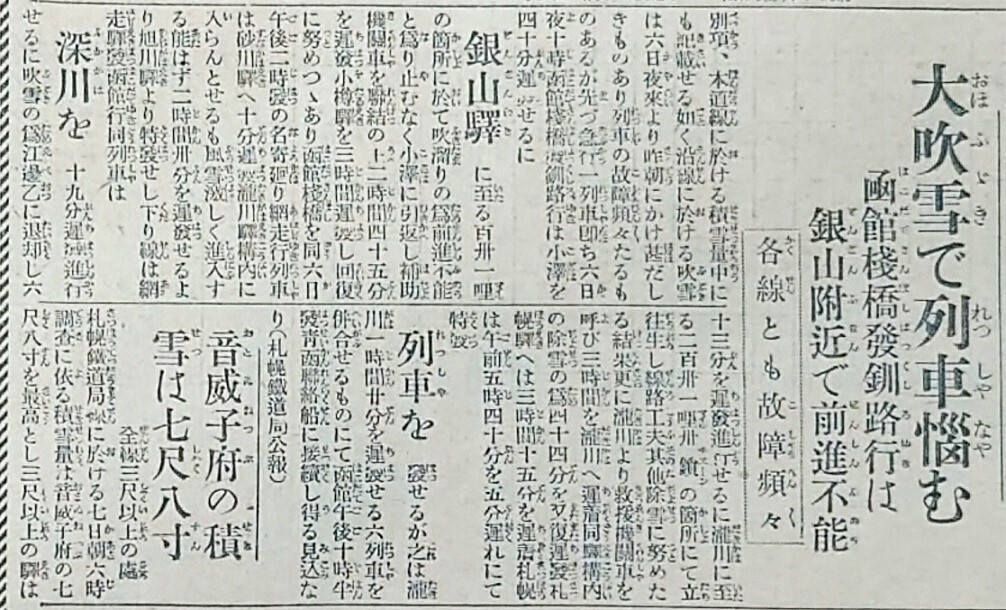 大吹雪で列車惱む
函館棧橋發釧路行は
銀山附近で前進不能
各線とも故障頻々
別項、本道線に於ける積雪量中に
も記載せる如く沿線に於ける吹雪
は六日夜來より昨朝にかけ甚だし
きものあり列車の故障頻々たるも
のあるが先づ急行一列車卽ち六日
夜十時函館棧橋發釧路行は小澤を
四十分遲發せるに
銀山驛 に至る百卅一哩
の箇所に於て吹溜りの爲前進不能
と爲り止むなく小澤に引返し補助
機關車を聯結の上二時間四十五分
を遲發小樽驛を三時間遲發し回復
に努めつゝあり函館棧橋を同六日
午後二時發の名寄廻り網走行列車
は砂川驛へ十分遲發瀧川驛構内に
入らんとせるも風雪激しく進入す
る能はず二時間卅分を遲發せるよ
り旭川驛より特發せし下り線は網
走驛發函館行同列車は
深川を 十九分遲發進行
せるに吹雪の爲江邊乙に退却し六
十三分を遲發進行せるに瀧川に至
る二百卅一哩卅 鎖の箇所にて立
往生し線路工夫其他除雪に努めた
る結果更に瀧川より救援機關車を
呼び三時間を瀧川へ遲着同驛構内
の除雪の爲四十四分を又復遲發札
幌驛へは三時間十五分を遲着札幌
は午前五時四十分を五分遲れにて
特發
列車を 發せるが之は瀧
川一時間廿分を遲發せる六列車を
併合せるものにて函館午後十時半
發靑函聯絡船に接續し得る見込な
り（札幌鐵道局公報）
音威子府の積
雪は七尺八寸
全線三尺以上の處
札幌鐵道局線に於ける七日朝六時
調査に依る積雪量は音威子府の七
尺八寸を最高とし三尺以上の驛は